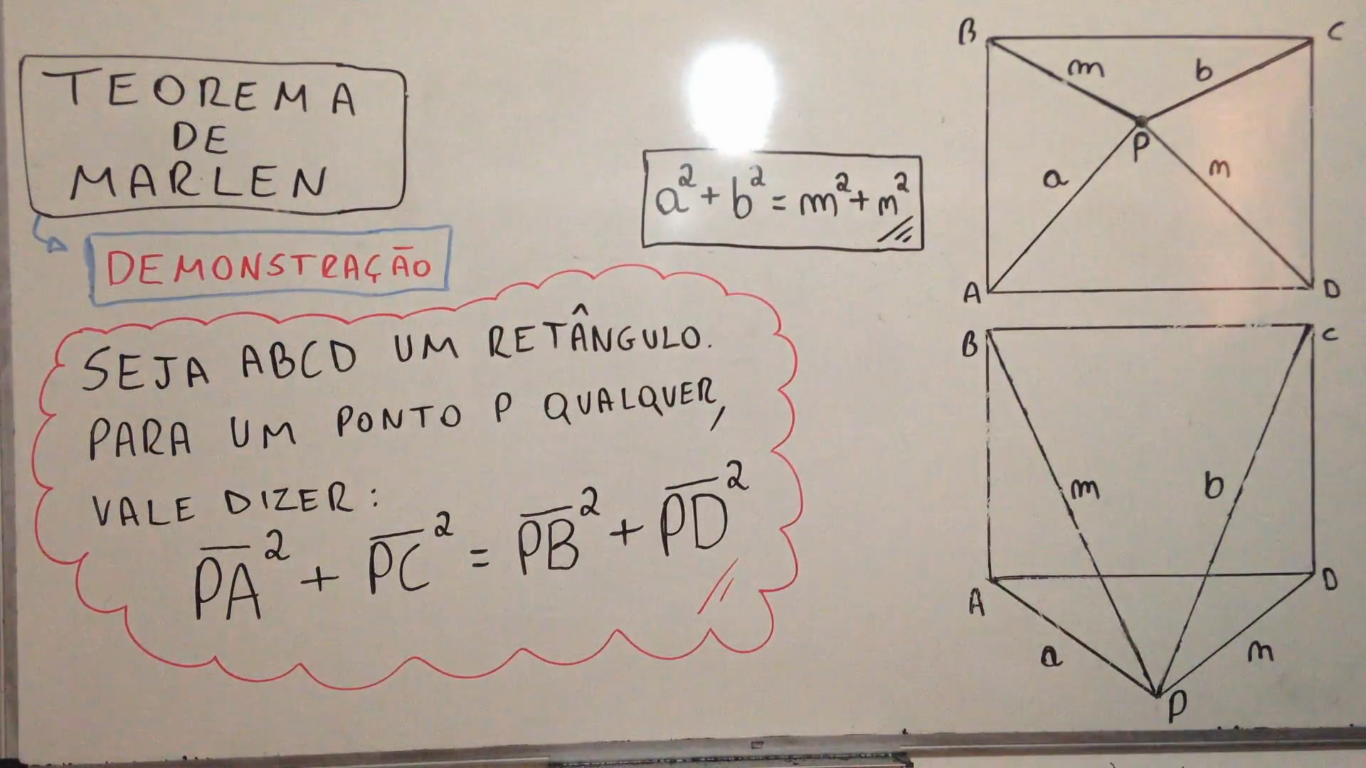 TEOREMA
DE
MARLEN
DEMONSTRAÇÃO
SEJA ABCD UM RETÂNGULO.
PARA UM PONTO P QUALQUER,
VALE DIZER:
PA² + PC² = PB² + PD²
a² + b² = m² + n²
B
C
m
b
P
a
n
A
D
B
C
m
b
A
D
a
n
P